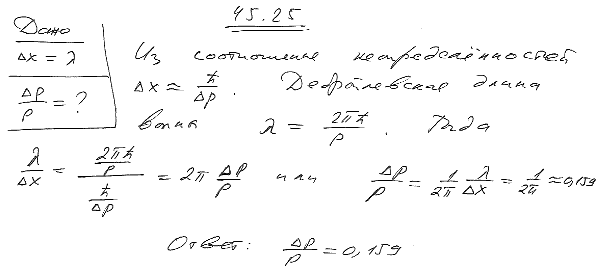 45.25
Дано
Δx = λ
Δp/p = ?
Из соотношение неопределённостей
Δx ≈ ħ/Δp. Дебройлевская длина
волны λ = 2πħ/p. Тогда
λ/Δx = (2πħ/p)/(ħ/Δp) = 2π Δp/p или Δp/p = 1/2π λ/Δx = 1/2π ≈ 0,159
Ответ: Δp/p = 0,159